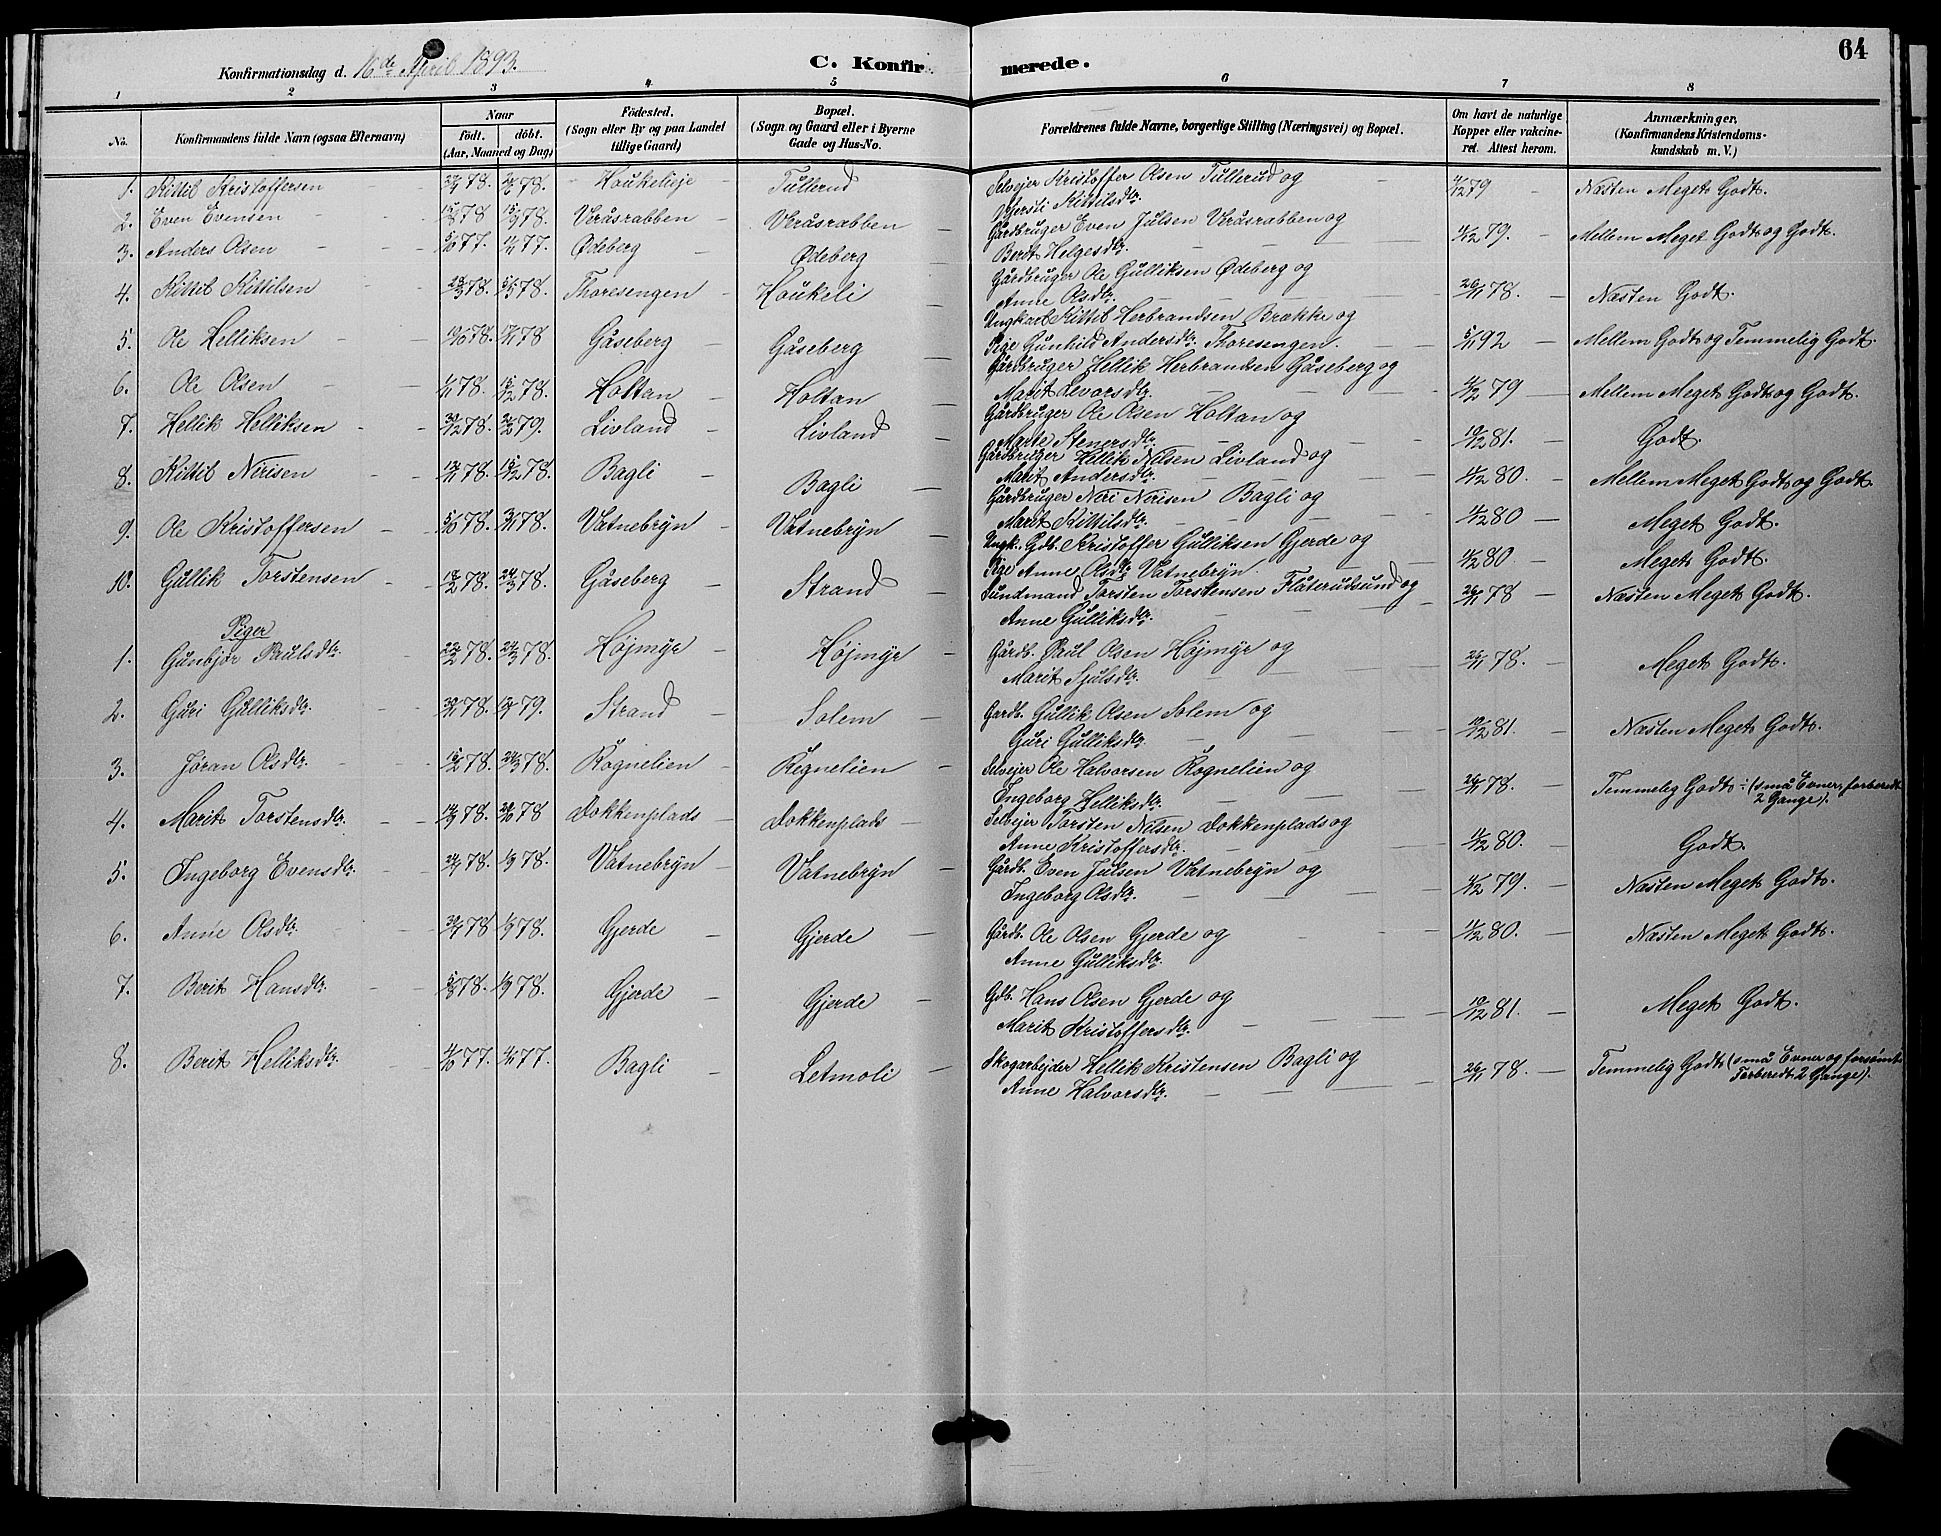 64
Konfirmationsdag d. 16de April 1893.
C. Konfirmerede.
1 2 3 4 5 6 7 8
No. Konfirmandens fulde Navn (ogsaa Efternavn) Naar födt. döbt. (Aar, Maaned og Dag) Födested. (Sogn eller By og paa Landet tillige Gaard) Bopæl. (Sogn og Gaard eller i Byerne Gade og Hus-No. Forældrenes fulde Navne, borgerlige Stilling (Næringsvei) og Bopæl. Om havt de naturlige Kopper eller vakcineret. Attest herom. Anmærkninger. (Konfirmandens Kristendomskundskab m. V.)
1. Kittil Kristoffersen 78. 78. Houkelie Tullerud Selvejer Kristoffer Olsen Tullerud og Kjersti Kittilsdtr. 79 Næsten Meget Godt.
2. Even Evensen 78 78. Veråsrabben Veråsrabben Gårdbruger Even Julsen Veråsrabben og Berit Helgesdtr. 4/12 79. Mellem Meget Godt og Godt.
3. Anders Olsen 77. 77. Ødeberg Ødeberg Gårdbruger Ole Gulliksen Ødeberg og Anne Olsdtr. 26/11 78. Næsten Godt.
4. Kittil Kittilsen 78. 78. Thoresengen Houkeli Ungkarl Kittil Herbrandsen Brække og Pige Gunhild Andersdtr. Thoresengen. 5/11 92 Mellem Godt og Temmelig Godt.
5. Ole Helliksen 78. 78 Gåseberg Gåseberg Gårdbruger Hellik Herbrandsen Gåseberg og Marit Levorsdtr. 4/12 79 Mellem Meget Godt og Godt.
6. Ole Olsen 78. 15/12 78. Holtan Holtan Gårdbruger Ole Olsen Holtan og Marte Stenersdtr. 10/12 81. Godt.
7. Hellik Helliksen 30/12 78. 79. Livland Livland Gårdbruger Hellik Nilsen Livland og Marit Andersdtr. 11/12 80. Mellem Meget Godt og Godt.
8. Kittil Nirisen 78. 15/12 78. Bagli Bagli Gårdbruger Neri Nerisen Bagli og Marit Kittilsdtr. 11/12 80 Meget Godt.
9. Ole Kristoffersen 78. 3/11 78. Vatnebryn Vatnebryn Ungk. Gdb. Kristoffer Gulliksen Gjerde og Pige Anne Olsdtr. Vatnebryn. 11/12 80. Meget Godt.
10. Gullik Torstensen 78. 24/3 78. Gåseberg Strand Sundmand Torsten Torstensen Flåterudsund og Anne Gulliksdtr. 26/11 78 Næsten Meget Godt.
Piger
1. Gunbjør Paulsdtr. 22/2 78. 24/3 78. Højmyr Højmyr Gårdb. Paul Olsen Højmyr og Marit Sjulsdtr. 26/11 78. Meget Godt.
2. Guri Gulliksdtr. 78. 79. Strand Solem Gardb. Gullik Olsen Solem og Guri Gulliksdtr. 10/12 81. Næsten Meget Godt.
3. Jøran Olsdtr. 78. 24/3 78. Rognelien Regnelien Selvejer Ole Halvorsen Rognelien og Ingeborg Helliksdtr. 26/11 78. Temmelig Godt ÷ (små Evner, forberedt 2 Gange).
4. Marit Torstensdtr. 78. 20/10 78 Dokkenplads Dokkenplads Selvejer Torsten Nilsen Dokkenplads og Anne Kristoffersdtr. 11/12 80. Godt.
5. Ingeborg Evensdtr. 78. 78. Vatnebryn Vatnebryn Gårdb. Even Julsen Vatnebryn og Ingeborg Olsdtr. 4/12 79. Næsten Meget Godt.
6. Anne Olsdtr. 78 78. Gjerde Gjerde Gårdb. Ole Olsen Gjerde og Anne Gulliksdtr. 11/12 80. Næsten Meget Godt.
7. Berit Hansdtr. 78. 78. Gjerde Gjerde Gdb. Hans Olsen Gjerde og Marit Kristoffersdtr. 10/12 81. Meget Godt.
8. Berit Helliksdtr. 77. 77. Bagli Letmoli Skogarbejder Hellik Kristensen Bagli og Anne Halvorsdtr. 26/11 78. Temmelig Godt (små Evner og forsømt. Forberedt 2 Gange).